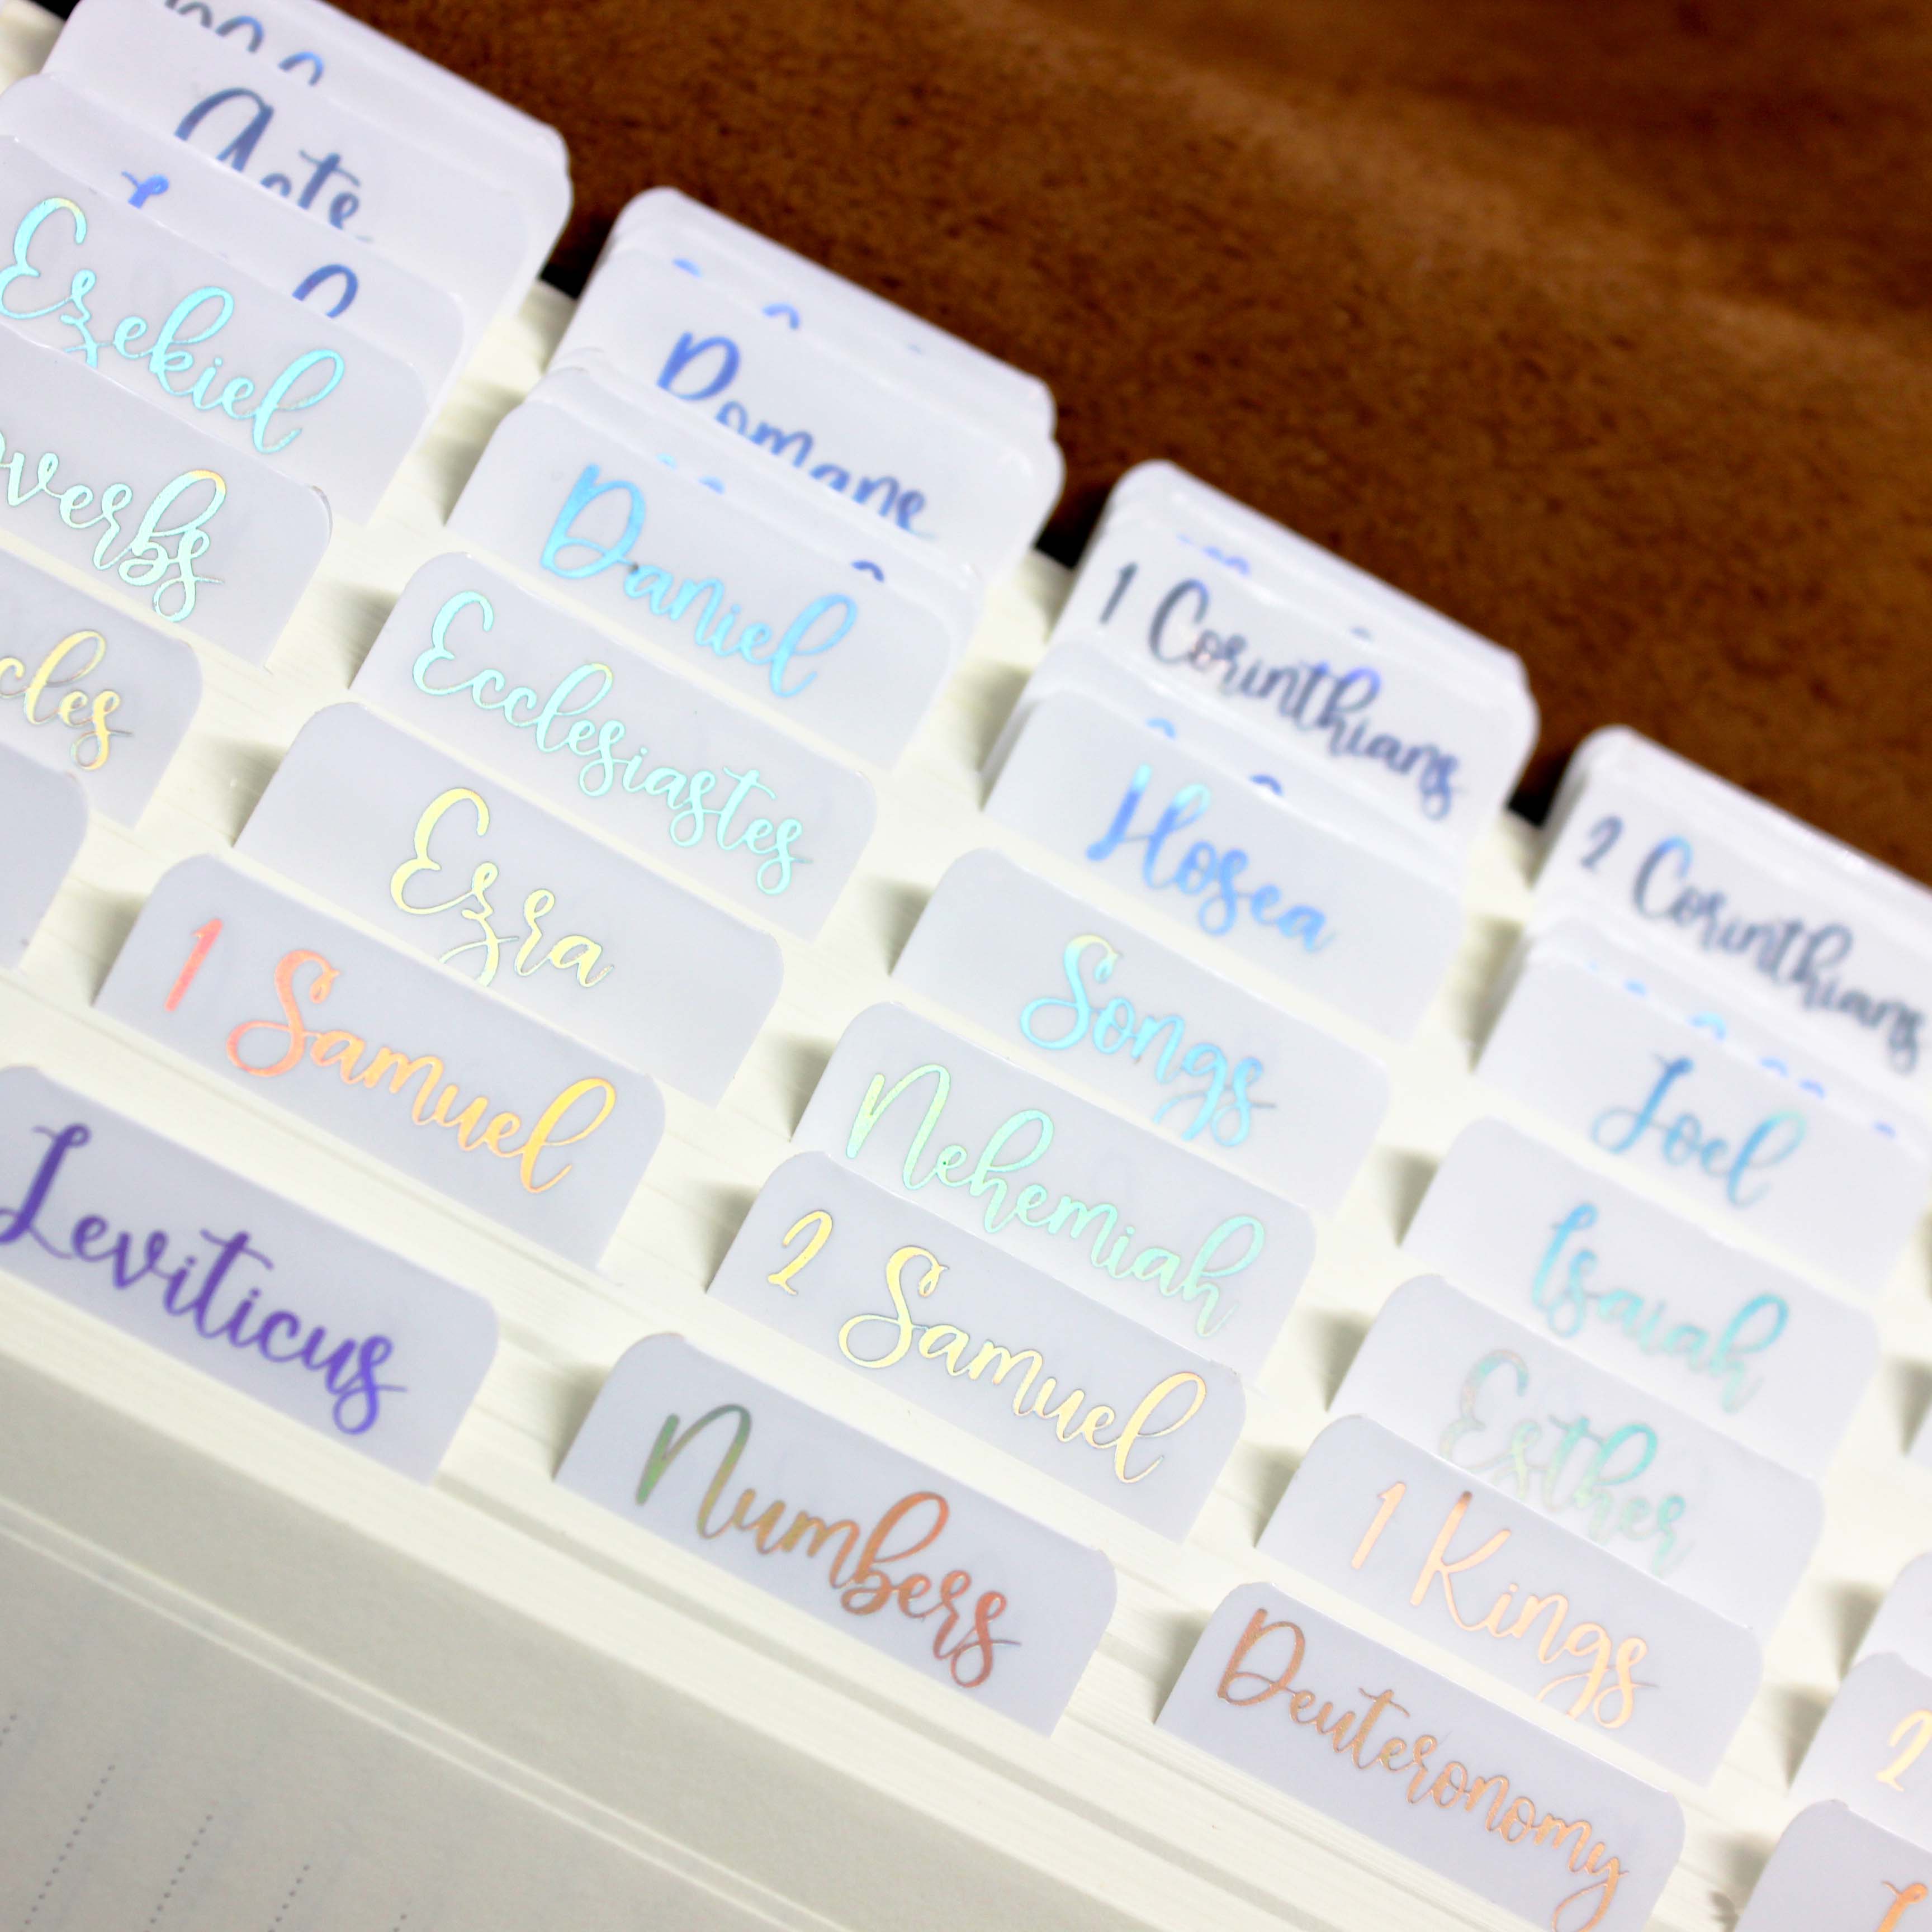 Acts
Romans
1 Corinthians
2 Corinthians
Ezekiel
Daniel
Hosea
Joel
Ecclesiastes
Songs
Isaiah
Ezra
Nehemiah
Esther
1 Samuel
2 Samuel
1 Kings
2
Leviticus
Numbers
Deuteronomy